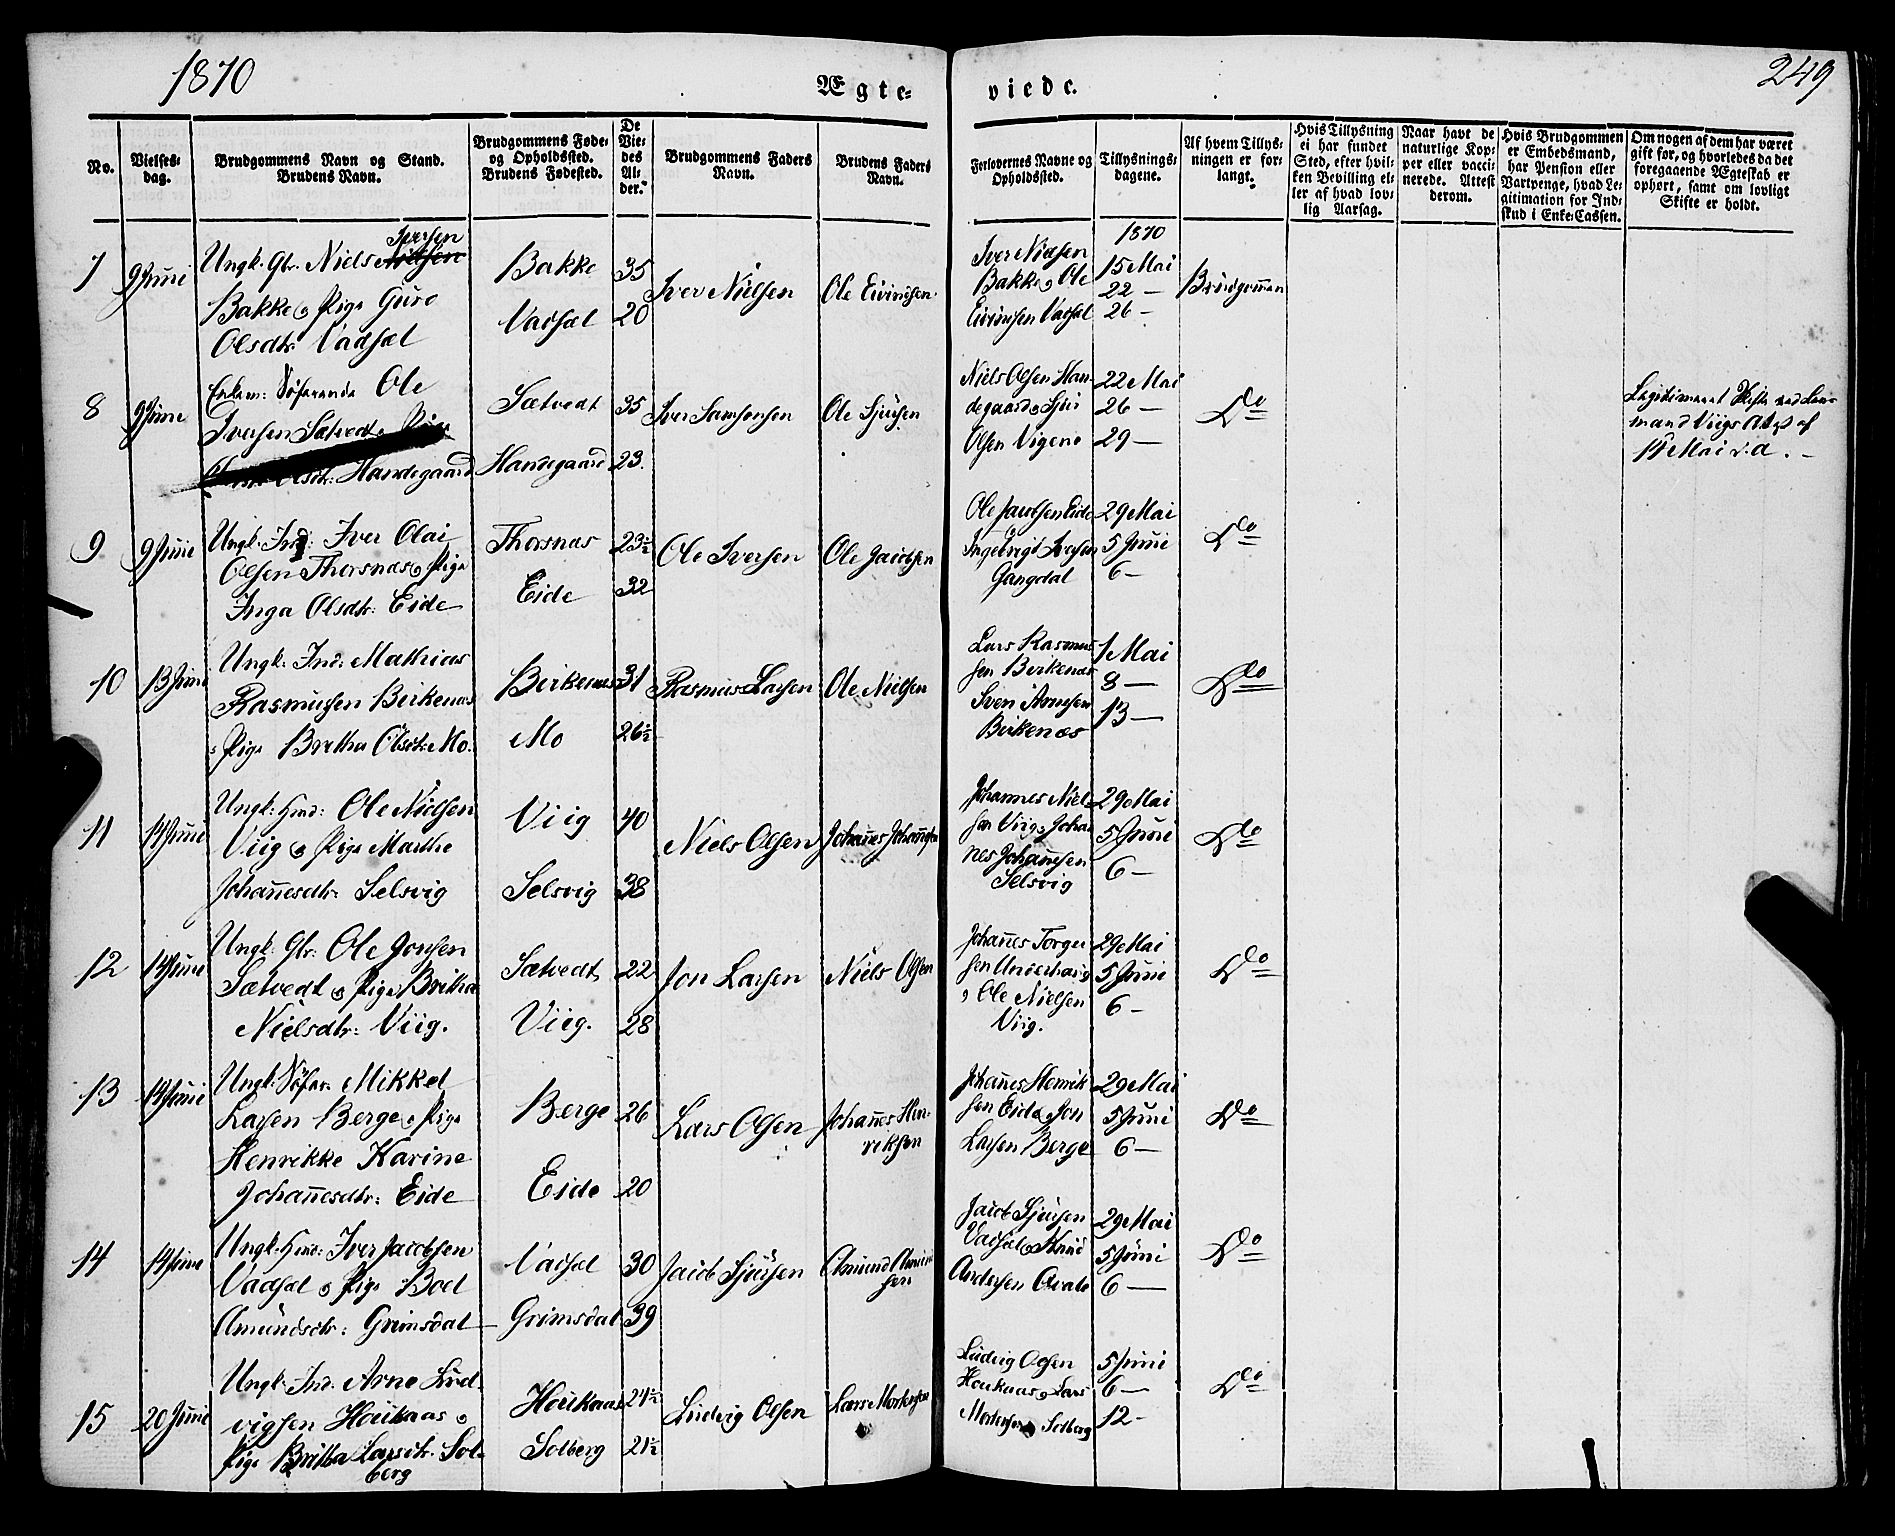 1870
Ægte-
viede.
249
No.
Vielses-
dag.
Brudgommens Navn og Stand.
Brudens Navn.
Brudgommens Føde-
og Opholdssted.
Brudens Fødested.
De
Vie-
des
Al-
der.
Brudgommens Faders
Navn.
Brudens Faders
Navn.
Forlovernes Navne og
Opholdssted.
Tillysnings-
dagene.
Af hvem Tillys-
ningen er for-
langt.
Hvis Tillysning
ei har fundet
Sted, efter hvil-
ken Bevilling el-
ler af hvad lov-
lig Aarsag.
Naar havt de
naturlige Kop-
per eller vacci-
nerede. Attest
derom.
Hvis Brudgommen
er Embedsmand,
har Pension eller
Vartpenge, hvad Le-
gitimation for Ind-
skud i Enke-Cassen.
Om nogen af dem har været
gift før, og hvorledes da det
foregaaende Ægteskab er
ophørt, samt om lovligt
Skifte er holdt.
7
9 Juni
Iversen
Ungk. Gbr. Niels Nielsen
Bakke og Pige Guro
Olsdtr Vadsel
Bakke
Vadsel
35
20
Iver Nielsen
Ole Eivindsen
Iver Nielsen
Bakke og Ole
Eivindsen Vadsel
1870
15 Mai
22 —
26 —
Brudgommen
8
9 Juni
Enkem: Søfarende Ole
Iversen Sætvedt og Pige
Olsdtr: Handegaard
Sætvedt
Handegaard
35
23.
Iver Samsonsen
Ole Sjursen
Niels Olsen Han-
degaard og Sjur
Olsen Vigene
22 Mai
26 —
29 —
Do
Legitimeret Skifte ved Lens-
mand Viigs Attest af
14 Mai d.a. —
9
9 Juni
Ungk. Ind: Iver Olai
Olsen Thorsnas og Pige
Inga Olsdtr: Eide
Thorsnas
Eide
23½
32
Ole Iversen
Ole Jacobsen
Ole Jacobsen Eide
Ingebrigt Iversen
Gangdal
29 Mai
5 Juni
6 —
Do
10
13 Juni
Ungk: Ind: Mathias
Rasmussen Birkenas
og Pige Brita Olsdtr: Mo.
Birkenas
Mo
31
26½
Rasmus Larsen
Ole Nielsen
Lars Rasmus-
sen Birkenas
Sven Arnesen
Birkenæs
1 Mai
8 —
13 —
Do
11
14 Juni
Ungk: Hmd: Ole Nielsen
Viig og Pige Marthe
Johannesdtr: Selsvig
Viig
Selsvig
40
38
Niels Olsen
Johannes Johannesen
Johannes Niel-
sen Viig og Johan-
nes Johannesen
Selsvig
29 Mai
5 Juni
6 —
Do
12
14 Juni
Ungk: Gbr: Ole Jonsen
Sætvedt og Pige Britha
Nielsdtr: Viig.
Sætvedt
Viig.
22
28
Jon Larsen
Niels Olsen
Johannes Torger-
sen Underhaug
og Ole Nielsen
Viig.
29 Mai
5 Juni
6 —
Do
13
14 Juni
Ungk: Søfar: Mikkel
Larsen Berge og Pige
Henrikke Karine
Johannesdtr: Eide
Berge
Eide
26
20
Lars Olsen
Johannes Hen-
riksen
Johannes Henrik-
sen Eide og Jon
Larsen Berge
29 Mai
5 Juni
6 —
Do
14
14 Juni
Ungk: Hmd: Iver Jacobsen
Vadsel og Pige Boel
Amundsdtr: Grimsdal
Vadsel
Grimsdal
30
39
Jacob Sjursen
Amund
sen
Jacob Sjursen
Vadsel og Knud
Andersen Qvale
29 Mai
5 Juni
6 —
Do
15
20 Juni
Ungk: Ind: Arne Lud-
vigsen Houkaas og
Pige Britha Larsdtr. Sol-
berg
Houkaas
Solberg
24½
21½
Ludvig Olsen
Lars Mortensen
Ludvig Olsen
Houkaas og Lars
Mortensen Solberg
5 Juni
6 —
12 —
Do